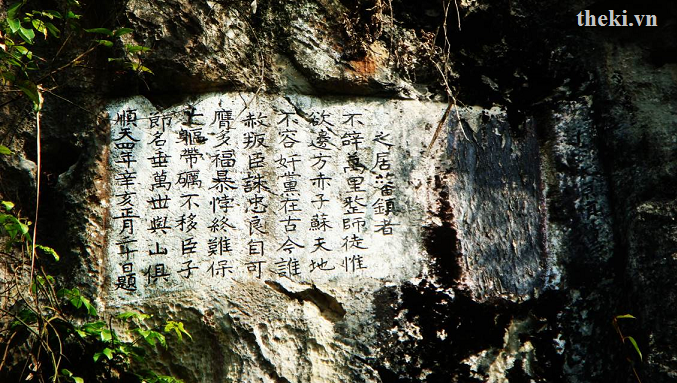 theki.vn
之居藩鎮者
不辭萬里整師徒惟
欲邊方赤子蘇天地
不容奸黨在古今誰
赦叛臣誅忠良自可
膺多福暴悖終難保
亡軀帶礪不移臣子
節名垂萬世與山俱
順天四年辛亥正月二十日題